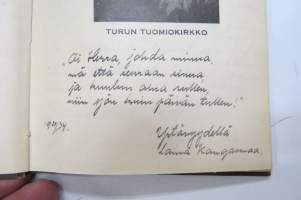 TURUN TUOMIOKIRKKO
"Oi Herra, johda minua,
mä että seuraan sinua
ja kuulun aina sulle,
niin yön kuin päivän tullen!"
Ystävyydellä
Laina Kangasmaa.